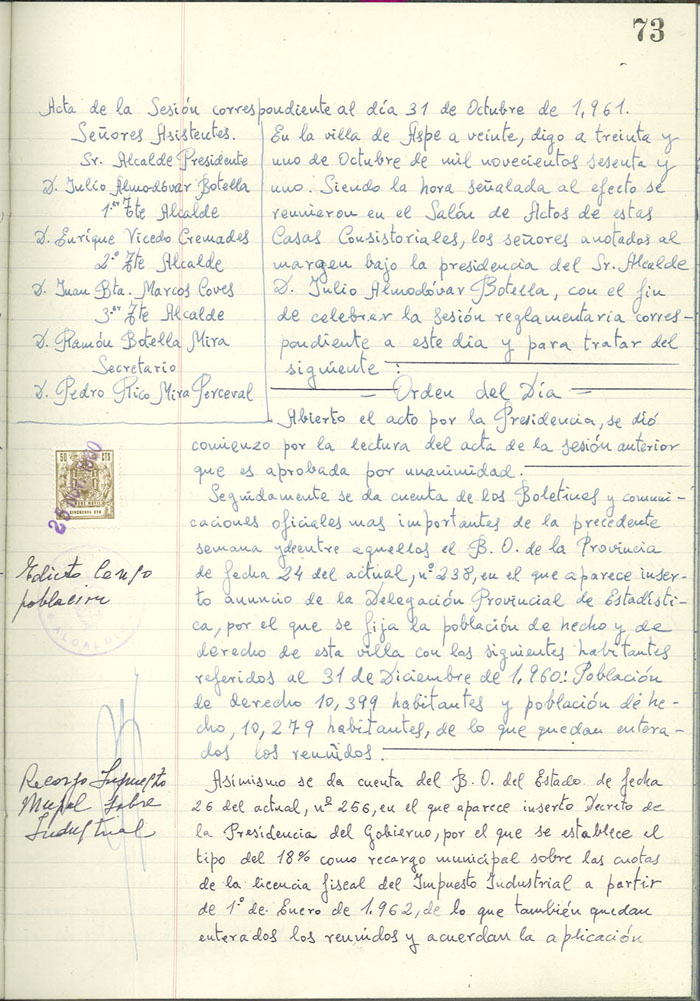 73
Acta de la Sesión correspondiente al día 31 de Octubre de 1,961.
Señores Asistentes.
Sr. Alcalde Presidente
D. Julio Almodóvar Botella
1er Tte Alcalde
D. Enrique Vicedo Cremades
2º Tte Alcalde
D. Juan Bta. Marcos Coves
3er Tte Alcalde
D. Ramón Botella Mira
Secretario
D. Pedro Rico Mira Perceval
En la villa de Aspe a veinte, digo a treinta y
uno de Octubre de mil novecientos sesenta y
uno. Siendo la hora señalada al efecto se
reunieron en el Salón de Actos de estas
Casas Consistoriales, los señores anotados al
margen bajo la presidencia del Sr. Alcalde
D. Julio Almodóvar Botella, con el fin
de celebrar la sesión reglamentaria corres-
pondiente a este dia y para tratar del
siguiente :
— Orden del Día —
Abierto el acto por la Presidencia, se dió
comienzo por la lectura del acta de la sesión anterior
que es aprobada por unanimidad.
50 CTS
Seguidamente se da cuenta de los Boletines y comuni-
caciones oficiales mas importantes de la precedente
semana y de entre aquellos el B. O. de la Provincia
de fecha 24 del actual, nº 238, en el que aparece inser-
to anuncio de la Delegación Provincial de Estadísti-
ca, por el que se fija la población de hecho y de
derecho de esta villa con los siguientes habitantes
referidos al 31 de Diciembre de 1,960: Población
de derecho 10,399 habitantes y población de he-
cho, 10,279 habitantes, de lo que quedan entera-
dos los reunidos.
Edicto Censo
población
Asimismo se da cuenta del B. O. del Estado de fecha
26 del actual, nº 256, en el que aparece inserto Decreto de
la Presidencia del Gobierno, por el que se establece el
tipo del 18% como recargo municipal sobre las cuotas
de la licencia fiscal del Impuesto Industrial a partir
de 1º de Enero de 1.962, de lo que también quedan
enterados los reunidos y acuerdan la aplicación
Recargo Impuesto
Mupal Sobre
Industrial